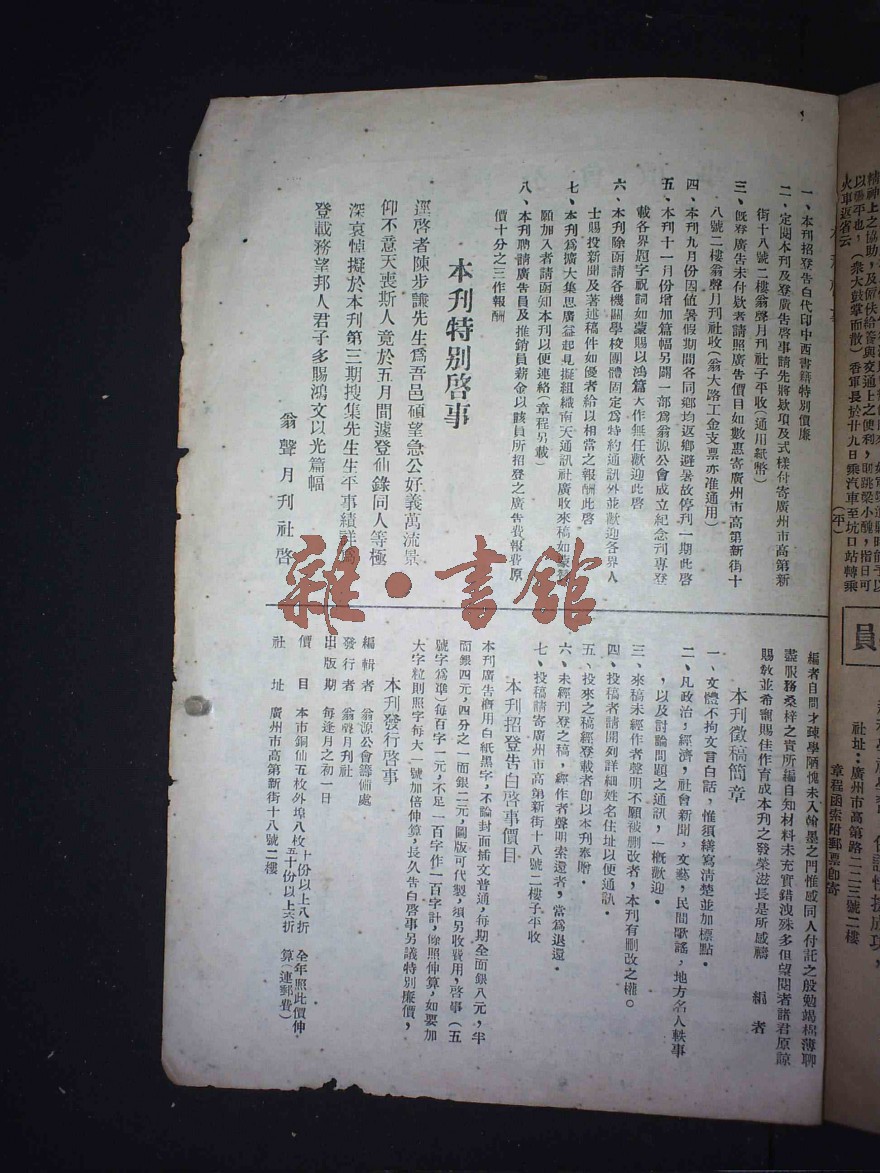 精神上之協助，及
以舉平也，（衆大鼓掌而散）香軍長於廿九日乘汽車至坑口站轉乘
火車返省云　（平）
員
社址：廣州市高第路二二三號二樓
章程函索附郵票卽寄
一、本刊招登告白代印中西書籍特別價廉
二、定閱本刊及登廣告啓事請先將欵項及式樣付寄廣州市高第新
街十八號二樓翁聲月刊社子平收（通用紙幣）
三、旣登廣告未付欵者請照廣告價目如數惠寄廣州市高第新街十
八號二樓翁聲月刊社收（翁大路工金支票亦准通用）
四、本刊九月份因値暑假期間各同鄉均返鄉避暑故停刊一期此啓
五、本刊十一月份增加篇幅另闢一部爲翁源公會成立紀念刊專登
載各界題字祝詞如蒙賜以鴻篇大作無任歡迎此啓
六、本刊除函請各機關學校團體固定爲特約通訊外並歡迎各界人
士賜投新聞及著述稿件如優者給以相當之報酬此啓
七、本刊爲擴大集思廣益起見擬組織南天通訊社廣收來稿如蒙
願加入者請函知本刊以便連絡（章程另載）
八、本刊聘請廣告員及推銷員薪金以該員所招登之廣告費報費原
價十分之三作報酬
本刊特別啓事
逕啓者陳步謙先生爲吾邑碩望急公好義萬流景
仰不意天喪斯人竟於五月間遽登仙錄同人等極
深哀悼擬於本刊第三期搜集先生生平事績詳爲
登載務望邦人君子多賜鴻文以光篇幅
翁聲月刊社啓
編者自問才疎學陋愧未入翰墨之門惟感同人付託之殷勉竭棉薄聊
盡服務桑梓之責所編自知材料未充實錯洩殊多但望閱者諸君原諒
賜敎並希寵賜佳作育成本刊之發榮滋長是所感禱　編者
本刊徵稿簡章
一、文體不拘文言白話，惟須繕寫淸楚並加標點。
二、凡政治，經濟，社會新聞，文藝，民間歌謠，地方名人軼事
，以及討論問題之通訊，一槪歡迎。
三、來稿未經作者聲明不願被删改者，本刊有删改之權。
四、投稿者請開列詳細姓名住址以便通訊。
五、投來之稿經登載者卽以本刊奉贈。
六、未經刊登之稿，經作者聲明索還者，當爲退還。
七、投稿請寄廣州市高第新街十八號二樓子平收
本刊招登告白啓事價目
本刊廣告槪用白紙黑字，不論封面插文普通，每期全面銀八元，半
面銀四元，四分之一面銀二元，圖版可代製，須另收費用，啓事（五
號字爲準）每百字一元，不足一百字作一百字計，餘照伸算，如要加
大字粒則照字每大一號加倍伸算，長久告白啓事另議特別廉價，
本刊發行啓事
編輯者　翁源公會籌備處
發行者　翁聲月刊社
出版期　每逢月之初一日
價目　本市銅仙五枚外埠八枚　十份以上八折　五十份以上六折　全年照此價伸算（連郵費）
社址　廣州市高第新街十八號二樓
雜·書館